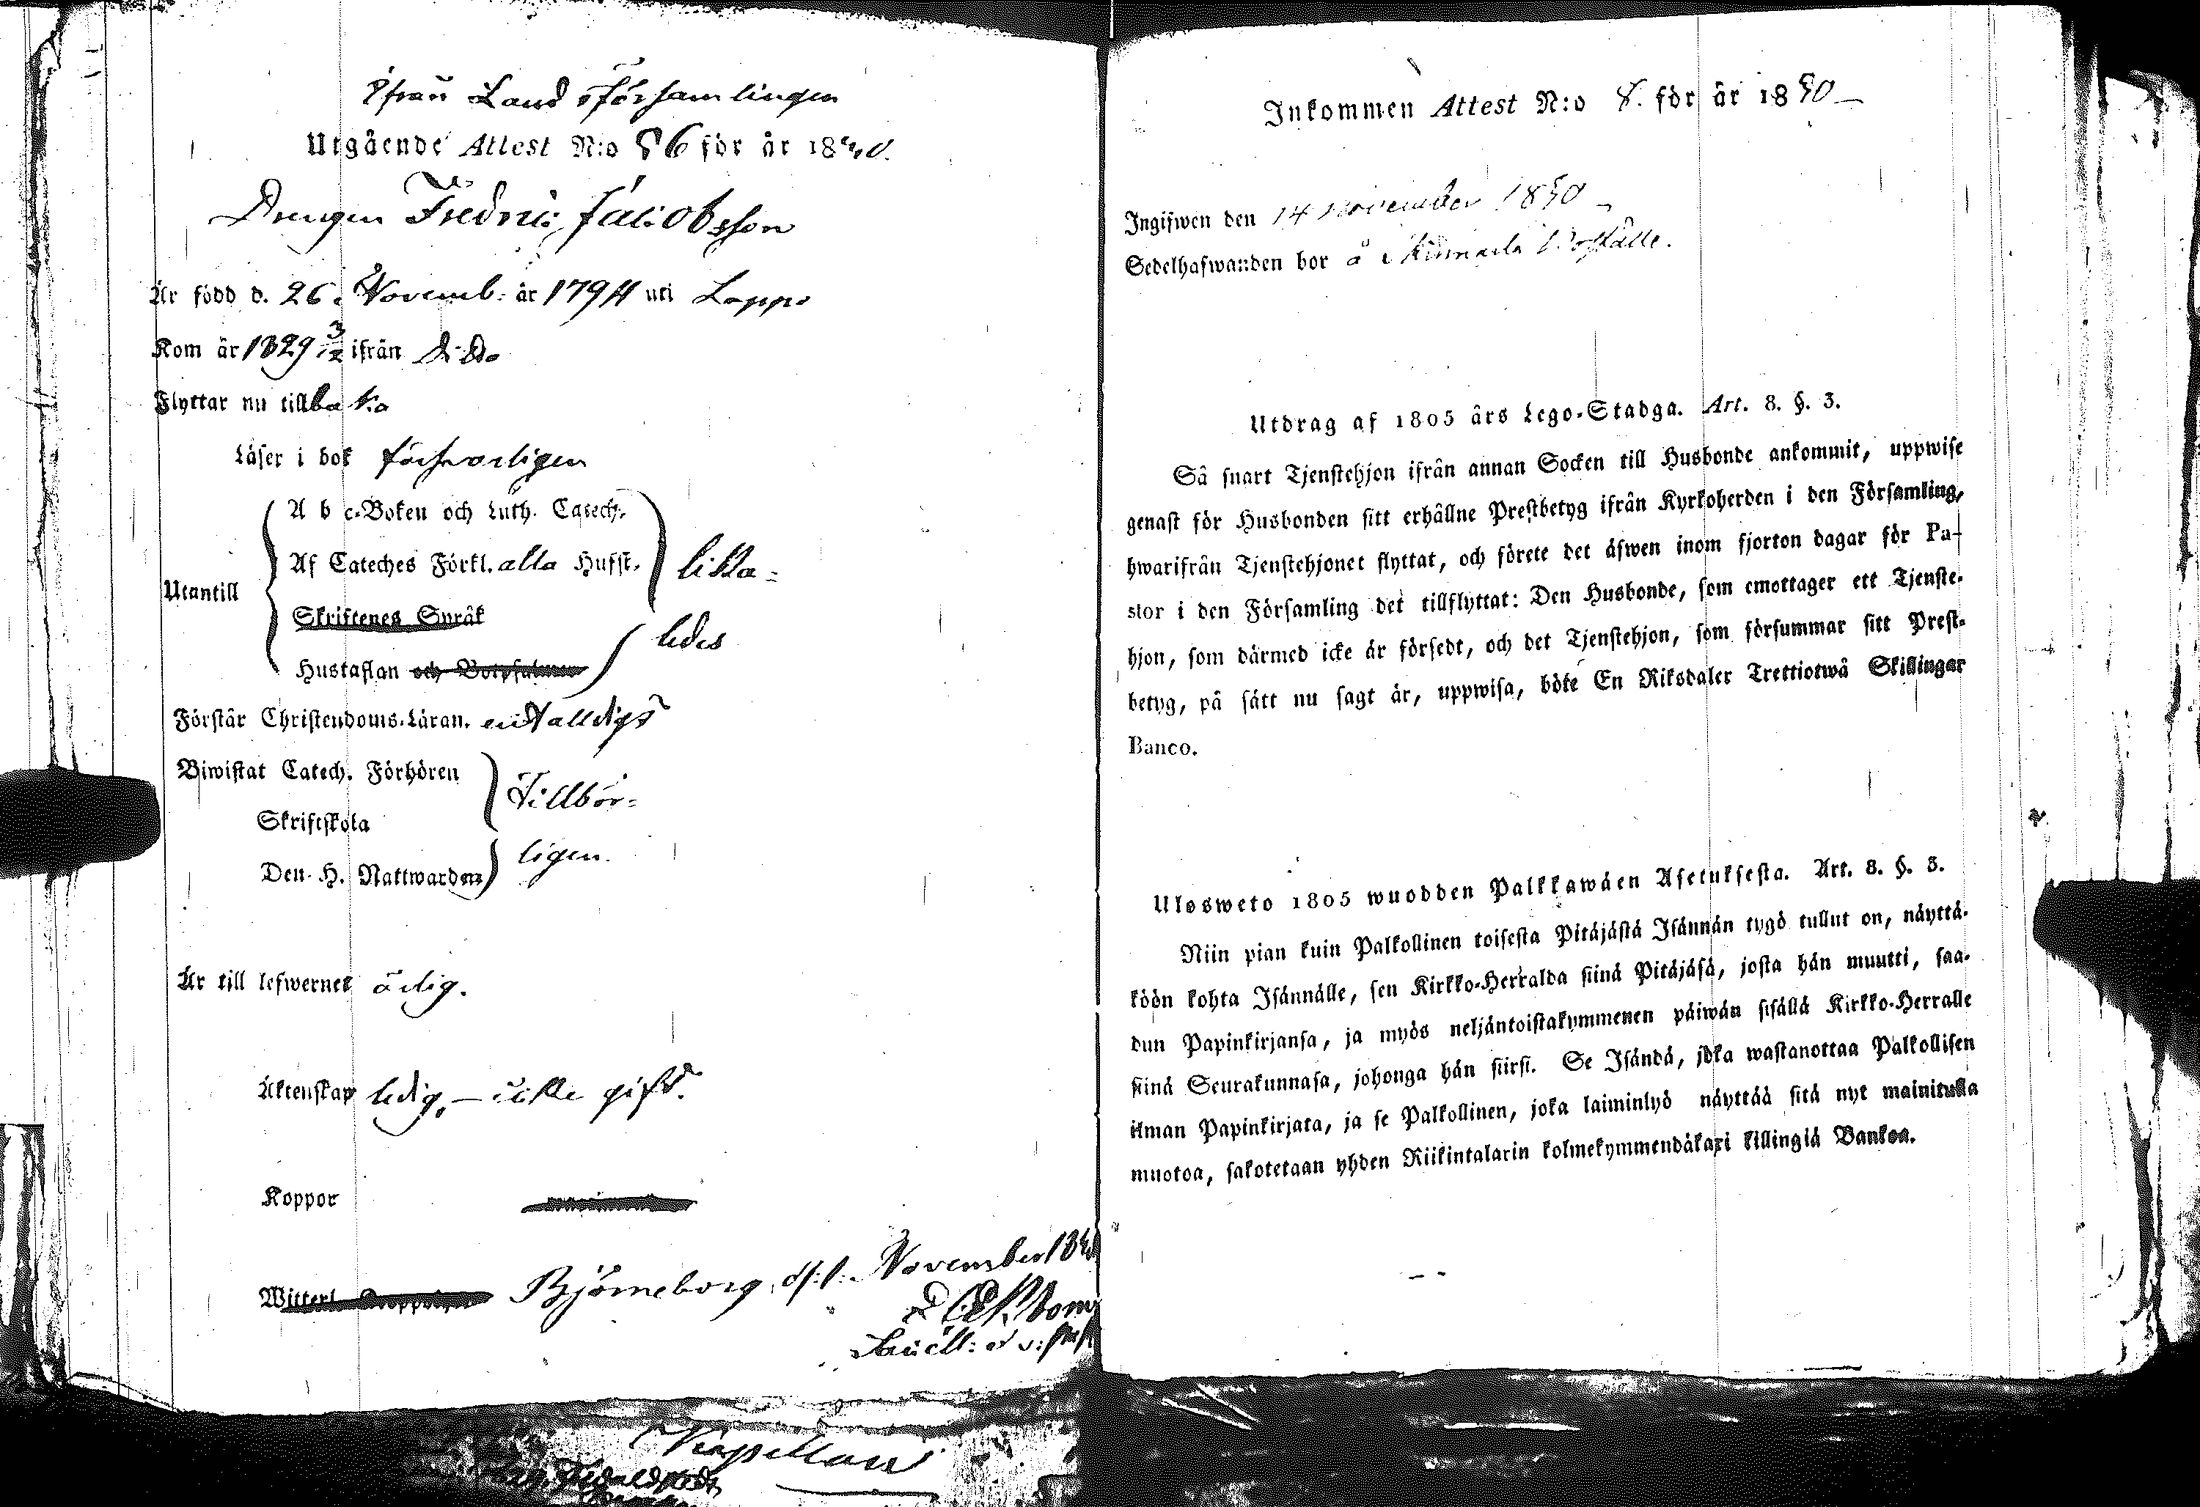 Ifrån Landsförsamlingen
Utgående Attest N:o 86 för år 1840.
Drengen Fredric Jacobsson
Är född d. 26 Novemb: år 1794 uti Lappi
Kom år 1829 3/12 ifrån Dido
Flyttar nu tillbaka
Läser i bok försvarligen
Utantill
A b c-Boken och Luth. Catech.
Af Cateches Förkl. alla Hufst.
Skriftenes Språk
Hustaflan och Botpsalmer
lika=
ledes
Förstår Christendoms-Läran. enfaldigt
Biwistat Catech. Förhören
Skriftskola
Den H. Nattwarden
Tillbör=
ligen.
Är till lefwernet ärlig.
Äktenskap ledig, — icke gift.
Koppor
Witterl. Björneborg, d: 1: November 184
Kapellan
Inkommen Attest N:o 8. för år 1840
Ingifwen den 14 November 1840
Sedelhafwanden bor å Boställe.
Utdrag af 1805 års Lego-Stadga. Art. 8. §. 3.
Så snart Tjenstehjon ifrån annan Socken till Husbonde ankommit, uppwise
genast för Husbonden sitt erhållne Prestbetyg ifrån Kyrkoherden i den Församling,
hwarifrån Tjenstehjonet flyttat, och förete det äfwen inom fjorton dagar för Pa-
stor i den Församling det tillflyttat: Den Husbonde, som emottager ett Tjenste-
hjon, som därmed icke är försedt, och det Tjenstehjon, som försummar sitt Prest-
betyg, på sätt nu sagt är, uppwisa, böte En Riksdaler Trettiotwå Skillingar
Banco.
Ulosweto 1805 wuodden Palkkawäen Asetuksesta. Art. 8. §. 3.
Niin pian kuin Palkollinen toisesta Pitäjästä Isännän tygö tullut on, näyttä-
köön kohta Isännälle, sen Kirkko-Herralda siinä Pitäjäsä, josta hän muutti, saa-
dun Papinkirjansa, ja myös neljäntoistakymmenen päiwän sisällä Kirkko-Herralle
siinä Seurakunnasa, johonga hän siirsi. Se Isändä, joka wastanottaa Palkollisen
ilman Papinkirjata, ja se Palkollinen, joka laiminlyö näyttää sitä nyt mainitulla
muotoa, sakotetaan yhden Riikintalarin kolmekymmendäkaxi killingiä Bankoa.